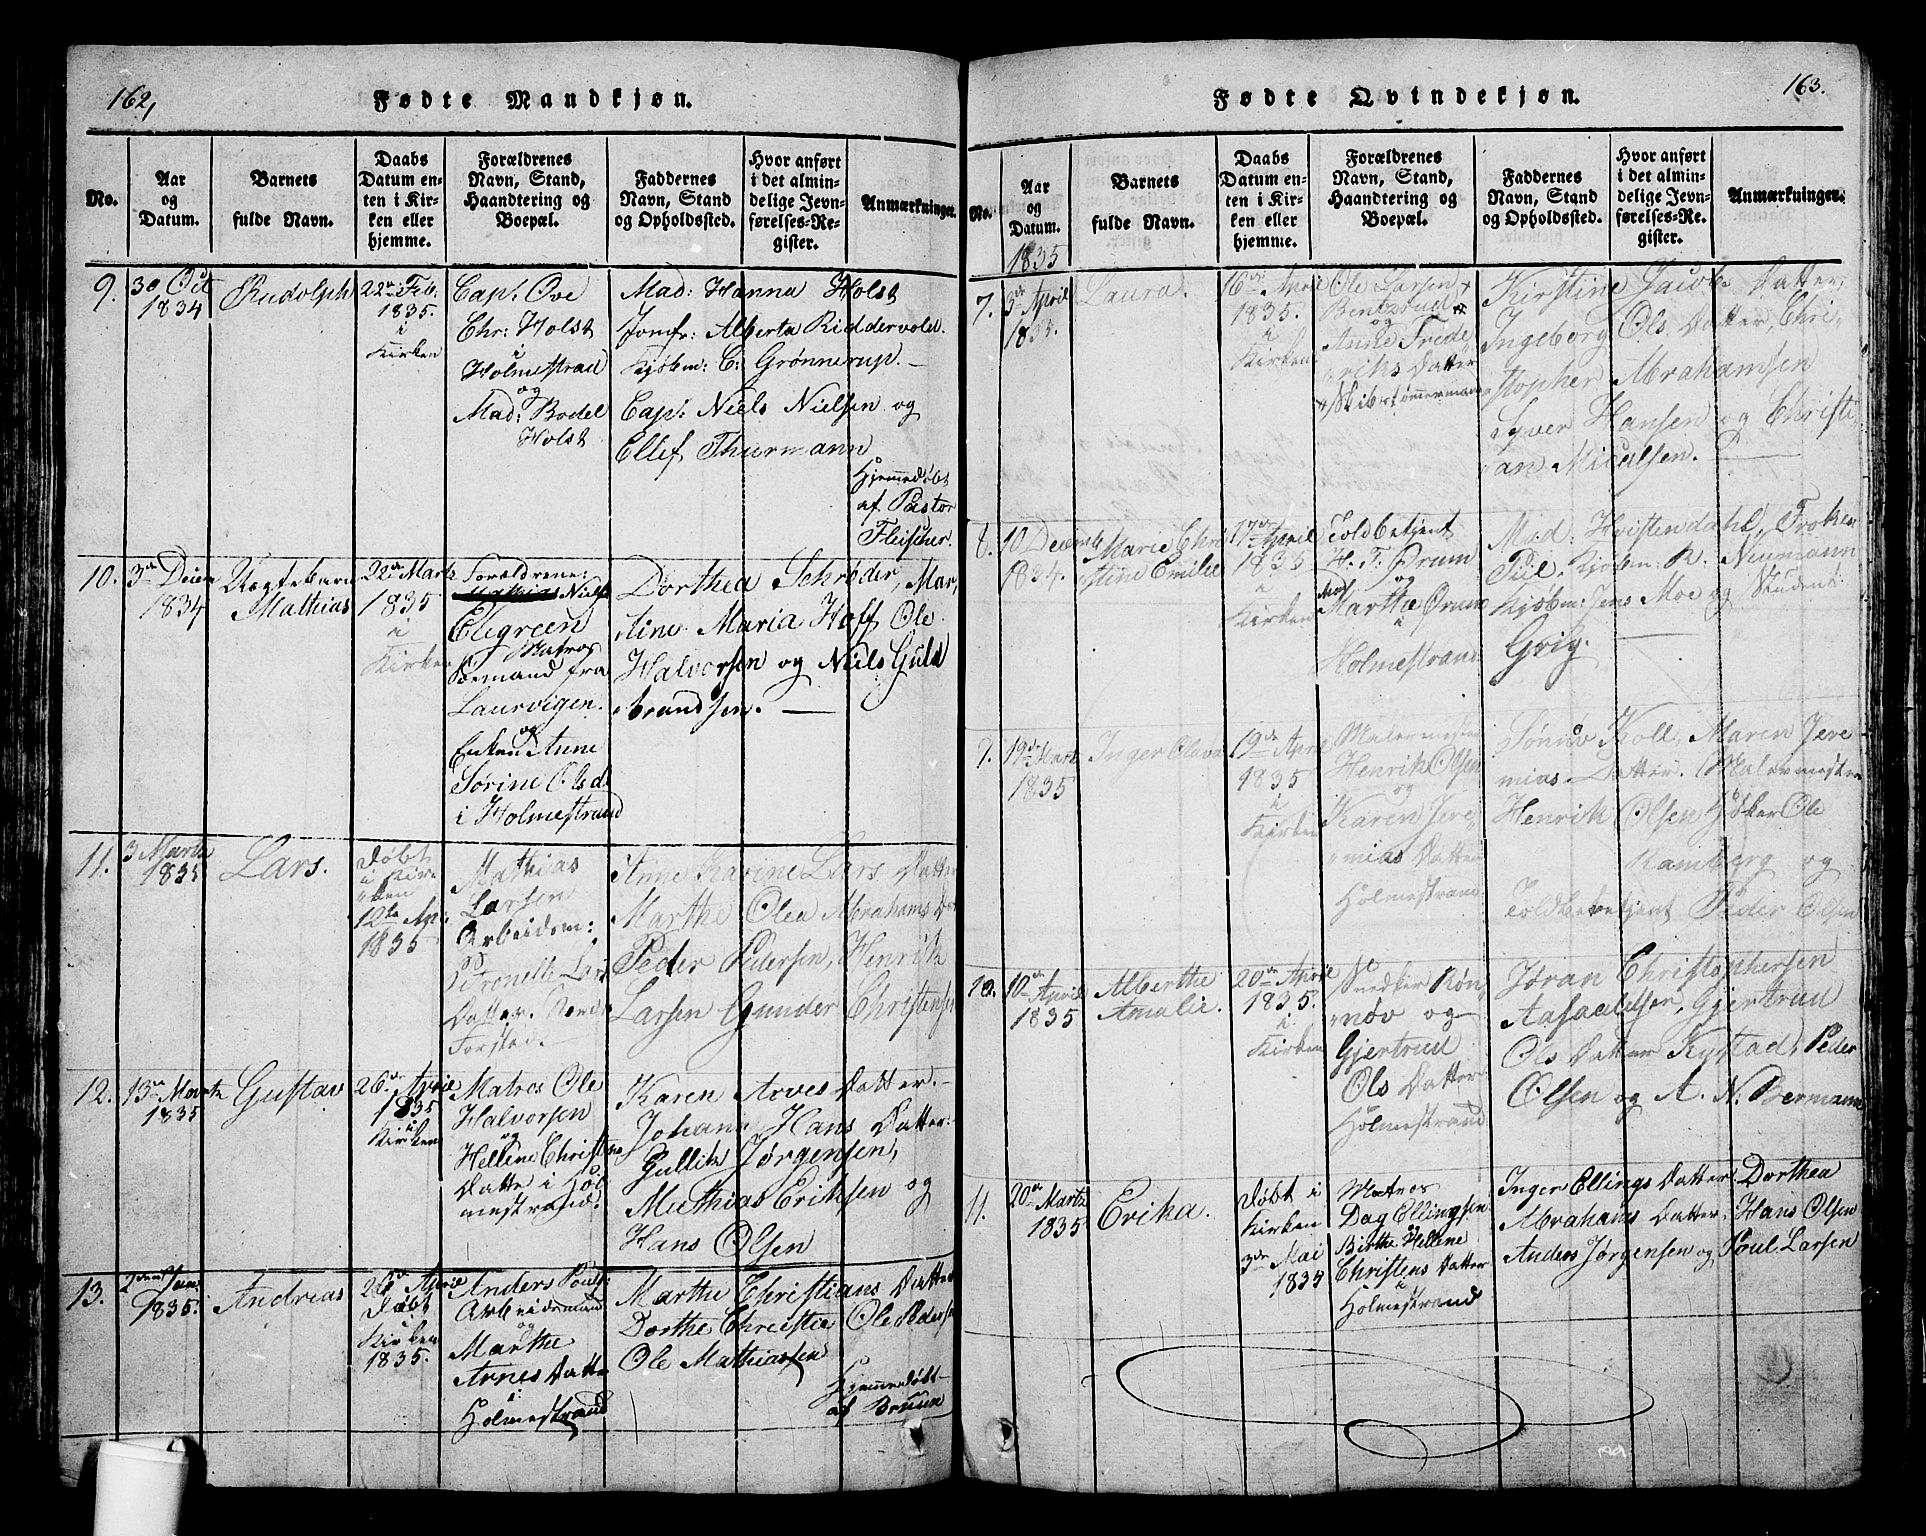 162,
Fødte Mandkjøn.
No.
Aar
og
Datum.
Barnets
fulde Navn.
Daabs
Datum en-
ten i Kir-
ken eller
hjemme.
Forældrenes
Navn, Stand,
Haandtering og
Boepæl.
Faddernes
Navn, Stand
og Opholdssted.
Hvor anført
i det almin-
delige Jevn-
førelses-Re-
gister.
Anmærkninger.
9.
30 Oct
1834
Rudolph
22de Feb.
1835.
i
Kirken
Cap: Ove
Chr: Holst
i
Holmestrad
og
Mad: Bodel
Holst
Mad: Hanna Holst
Jomfr: Alberta Riddervold.
Kjøbm: C: Grønnerup. —
Cap: Niels Nielsen og
Ellef Thurmann
Hjemmedøbt
af Pastor
Fleischer.
10.
1834
Uægtebarn
Mathias
22de Martz
1835
i
Kirken
Forældrene:
Niels
Elegreen
Matros
fra
Laurvigen.
og
Enken Anne
Sørine Olsd.
i Holmestrand
Dorthea Schrøder, Mar,
tine Maria Hoff Ole
Halvorsen og Niels Guld
brandsen. —
11.
3 Martz
1835
Lars.
Døbt
i Kir-
ken
12te Ap:
1835
Mathias
Larsen
Arbeidsm:
og
Petronelle Lars
Datter.
Anne Karine Lars Datter
Marthe Olea Abrahams Dr
Peder Pedersen, Henrik
Larsen Gunder Christensen
12.
13de Martz
1835
Gustav
26de April
1835
i
Kirken
Matros Ole
Halvorsen
og
Hellene Christens
Datte i Hol
mestrand.
Karen Arves Datter. —
Johann Hans Datter.
Gullik Jørgensen,
Mathias Eriksen og
Hans Olsen
13.
1835.
Andreas
26de April
Døbt
i
Kirken
1835.
Anders Pouls:
Arbeidsmand
og
Marthe
Arnes Datte
i
Holmestrand
Marthe Christians Datter
Dorthe Christie Ole Peders
Ole Mathiassen
Hjemmedøbt
af Bruun
163.
Fødte Qvindekjøn.
No.
Aar
og
Datum.
1835
Barnets
fulde Navn.
Daabs
Datum en-
ten i Kir-
ken eller
hjemme.
Forældrenes
Navn, Stand,
Haandtering og
Boepæl.
Faddernes
Navn, Stand
og Opholdssted.
Hvor anført
i det almin-
delige Jevn-
førelses-Re-
gister.
Anmærkninger.
7.
3de April
1835.
Laura.
16de April
1835.
i
Kirken
Ole Larsen
Bentsrud
og
Anne Frede,
riks Datter
Skibstømmermand
Kirstine Jacobs Datter,
Ingeborg Ols Datter, Chri-
stopher Abrahamsen
Syver Hansen og Christi,
an Micalsen.
8.
10 Decemb
1834.
Marie Chri
stine Emilie
17de April
1835
i
Kirken
Toldbetjent
H. T. Ørum
og
Mad.
Marthe Ørum
i
Holmestrand.
Mad. Hvistendahl, Frøken
Piil. Kjøbm: R. Neumann
Kjøbm: Jens Moe og Student
Grig.
9.
19de Martz
1835
Inger Olava
19de April
1835
i
Kirken
Malermester
Henrik Olsen
og
Karen Jere,
mias Datter
Holmestrand.
Sønnøv Koll, Maren Jere
mias Datter. Malermester
Henrik Olsen Høker Ole
Ramberg og
Toldbetjent Peder Olsen
10.
10de April
1835
Alberthe
Amalie.
20de April
1835.
i
Kirken
Snedker Røn,
nov og
Gjertrud
Ols Datter
Holmestrand
Jøran Christophersen
Aasadelsen, Gjertrud
Ols Datter Kystad, Peder
Olsen og A. N. Bermann
11.
20de Martz
1835
Erika.
Døbt i
Kirken
3de Mai
1835
Matros
Dag Ellingsen
og
Birthe Hellene
Christens Datter
i
Holmestrand
Inger Ellings Datter Dorthea
Abrahams Datter, Hans Olsen
Anders Jørgensen og Poul Larsen